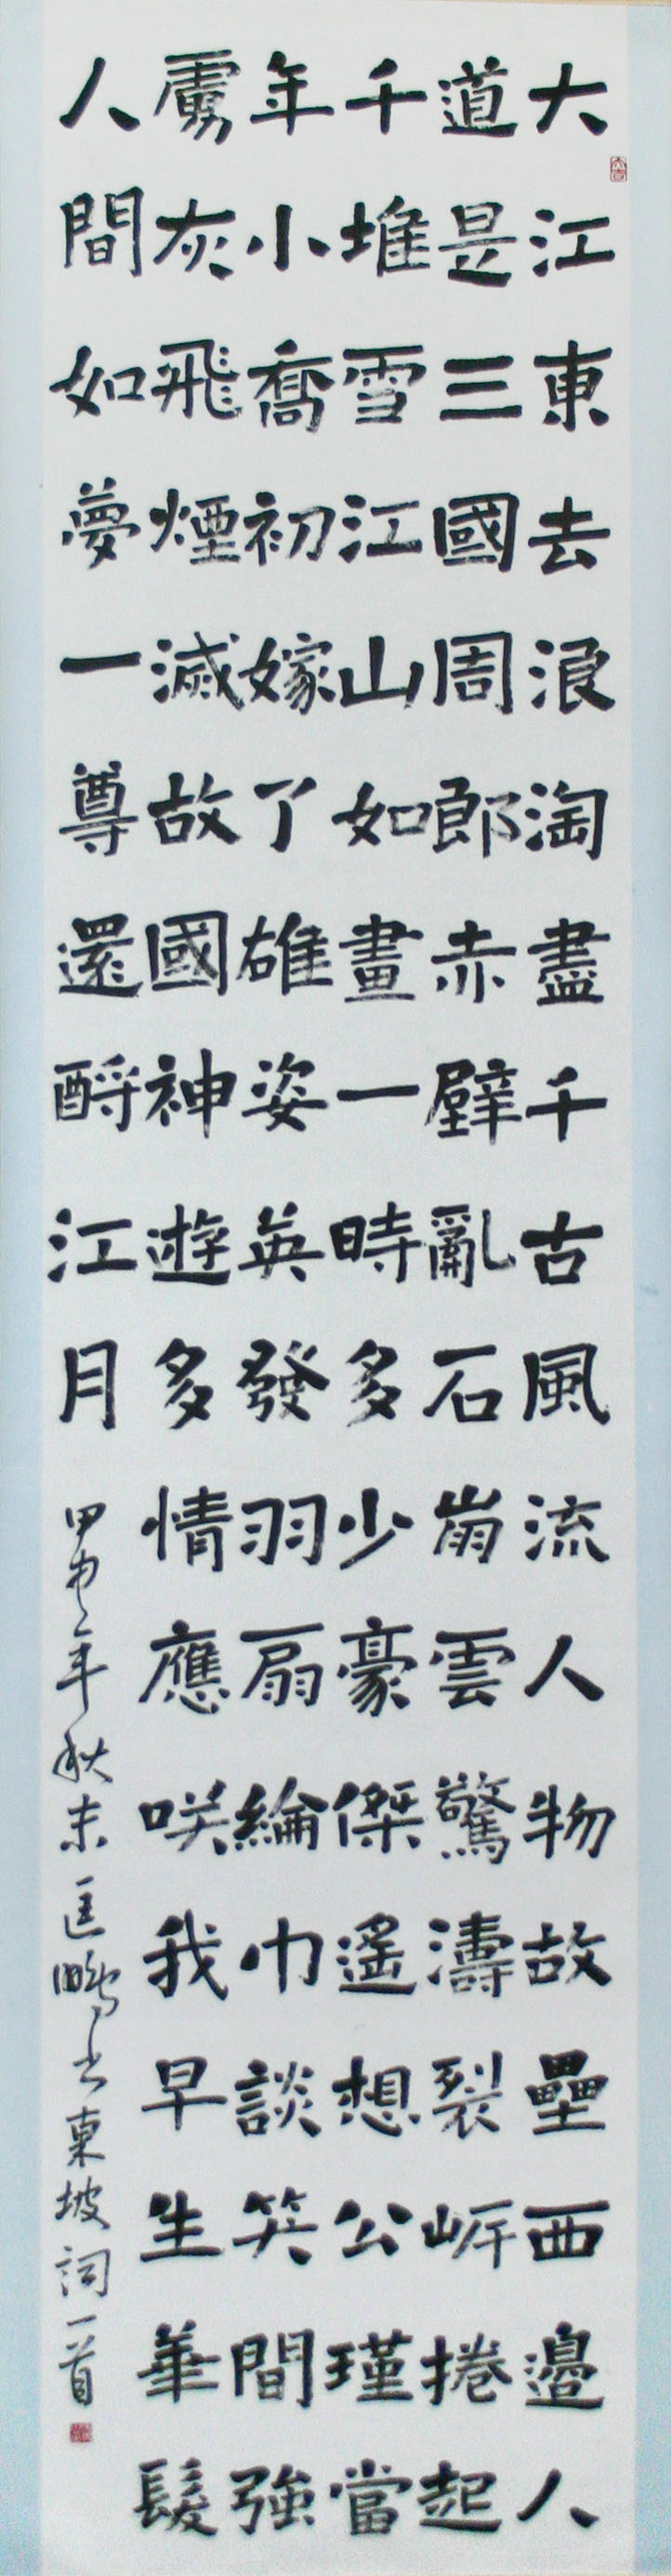 大江東去浪淘盡千古風流人物故壘西邊人
道是三國周郎赤壁亂石崩雲驚濤裂岸捲起
千堆雪江山如畫一時多少豪傑遙想公瑾當
年小喬初嫁了雄姿英發羽扇綸巾談笑間強
虜灰飛煙滅故國神遊多情應咲我早生華髮
人間如夢一尊還酹江月
甲申年秋末匡書東坡詞一首